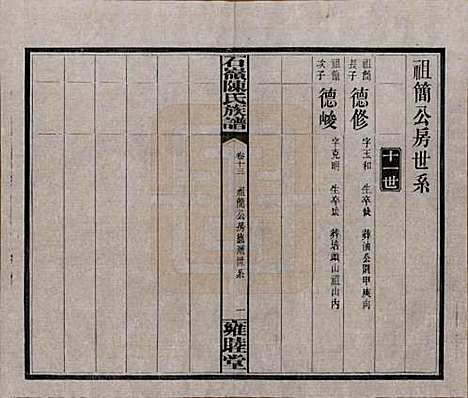 祖簡公房世系
十一世
祖簡長子 德修 字玉和 生卒缺 葬油公園甲庚向
祖簡次子 德峻 字克明 生卒缺 葬培頭山祖山內
石嶺陳氏族譜
卷十三 祖簡公房 世系
一
雍睦堂